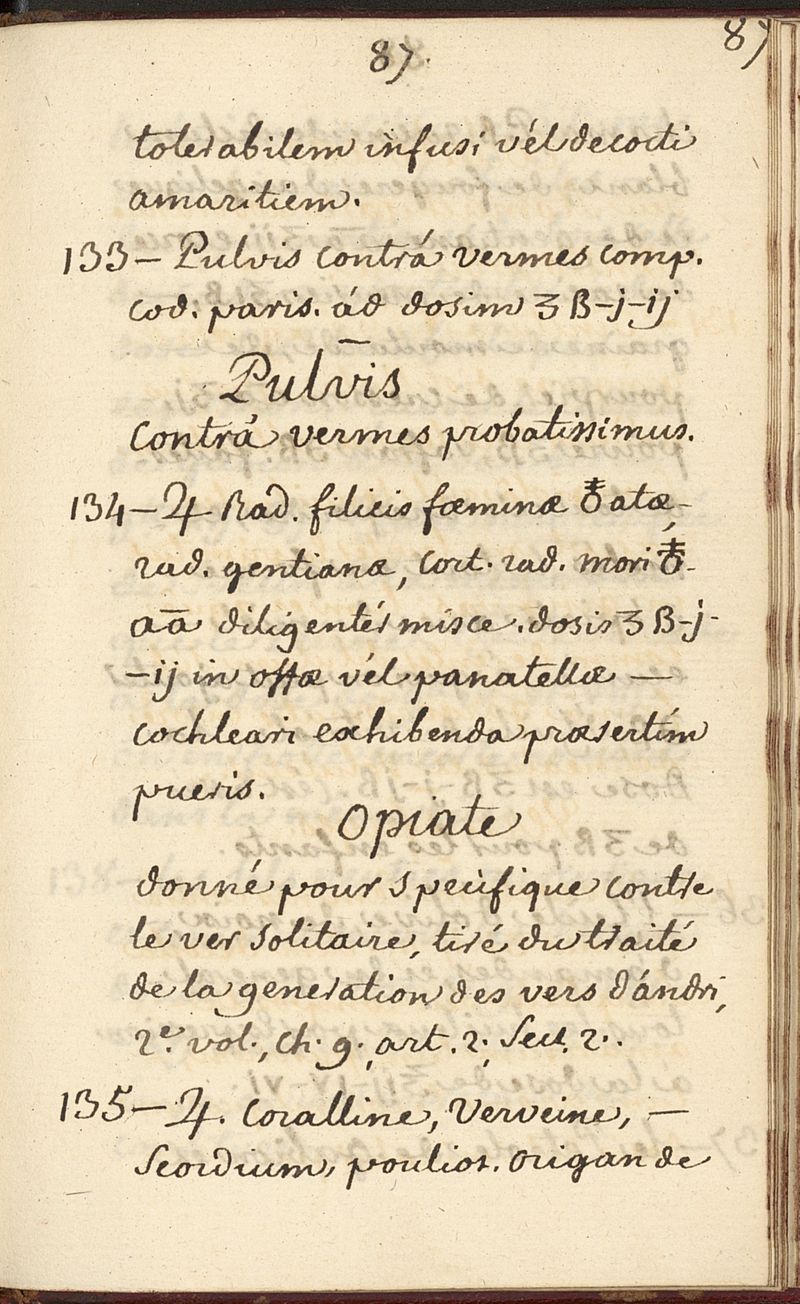 87
87.
tolerabilem infusi vél decocti
amaritiem.
133 – Pulvis contrá vermes comp.
Cod. paris. ád dosim ʒ ß – j – ij
Pulvis
Contrá vermes probatissimus.
134 – ♃ Rad. filicis fœminæ ♁atæ,
rad. gentianæ, cort. rad. mori ♁.
aā diligentér misce. dosis ʒ ß – j –
– ij in offæ vél panatellæ —
cochleari exhibenda præsertím
pueris.
Opiate
donné pour spécifique contre
le ver solitaire, tiré du traité
de la generation des vers d'ándri,
2e. vol., Ch. 9. art. 2. Sect. 2.
135 – ♃. Coralline, Verveine, —
Scordium, pouliot. Origan de